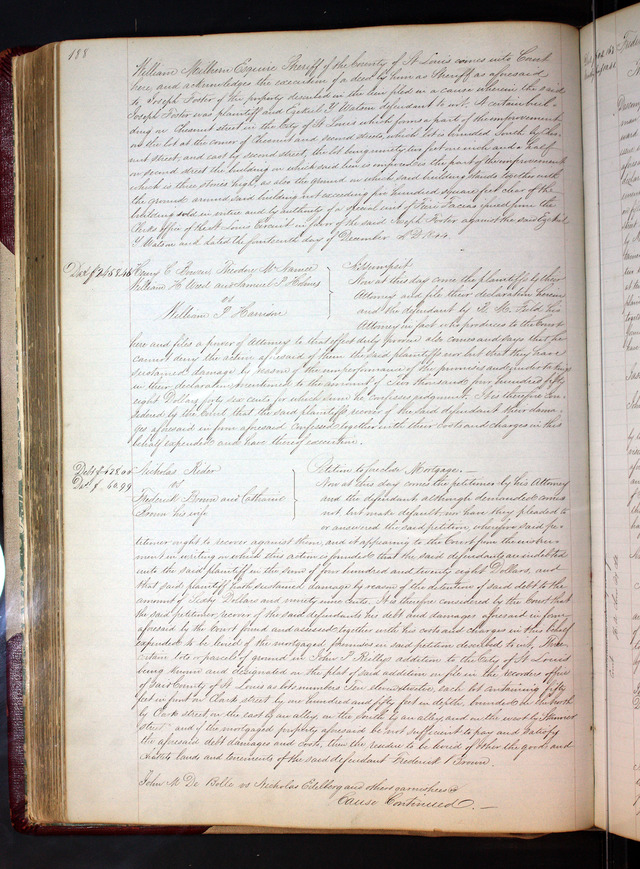 188
William Milburn Esquire Sheriff of the County of St Louis comes into Court
here, and acknowledges the execution of a deed by him as Sheriff as aforesaid
to Joseph Foster of the property described in the lien filed in a cause wherein the said
Joseph Foster was plaintiff and Y Watson defendant to wit. A certain buil-
ding on Chesnut street in the City of St. Louis which forms a part of the improvement
on the lot at the corner of Chesnut and second streets, which lot is bounded South by Ches-
nut street, and east by second street, the lot being ninety two feet me inch and a half
on second street the building on which said lien is being the part of the improvement
which is three stories high, as also the ground on which said building stands together with
the ground around said building not exceeding five hundred square feet clear of the
building sold in entire and by authority of a special writ of Fieri Facias issued from the
Clerks office of the St Louis Circuit in favor of the said Joseph Foster against the said
Y Watson and dated the fourteenth day of December A D 1844.
Dam $2458.46 Henry C Bowen Theodore McNamee
William H Weed and Samuel P Holmes
vs
William P Harrison
Assumpsit
Now at this day come the plaintiffs by their
Attorney and file their declaration herein
and the defendant by Field his
Attorney in fact who produces to the Court
here and files a power of Attorney to that effect duly proven also comes and says that he
cannot deny the action aforesaid of them the said plaintiffs nor but that they have
sustained damage by reason of the non performance of the promises and undertakings
in their declaration mentioned to the amount of Two thousand four hundred fifty
eight Dollars forty six cents for which sum he confesses judgment. It is therefore con-
sidered by the Court that the said plaintiffs recover of the said defendant their dama-
ges aforesaid in form aforesaid confessed together with their costs and charges in this
behalf expended and have thereof execution.
Debt $428.00 Nicholas Rider
Dam $ 60.99 vs
Frederick Brown and Catherine
Brown his wife
Petition to foreclose Mortgage.
Now at this day comes the petitioner by his Attorney
and the defendant although demanded comes
not but make default, nor have they pleaded to
or answered the said petition, wherefore said pe-
titioner ought to recover against them, and it appearing to the Court from the instru-
ment in writing on which this action is founded that the said defendants are indebted
unto the said plaintiff in the sum of four hundred and twenty eight Dollars, and
that said plaintiff hath sustained damage by reason of the detention of said debt to the
amount of Sixty Dollars and ninety nine cents. It is therefore considered by the Court that
the said petitioner recover of the said defendants his debt and damages aforesaid in form
aforesaid by the Court found and assessed together with his costs and charges in this behalf
expended to be levied of the mortgaged premises in said petition described to wit, Three
certain lots or parcels of ground in John P Reillys addition to the City of St Louis
being known and designated on the plat of said addition on file in the recorders office
of Said County of St Louis as lots numbers Ten eleven twelve, each lot containing fifty
feet in front on Clark street by one hundred and fifty feet in depth, bounded on the north
by Clark street, on the east by an alley, on the south by an alley, and on the west by
street and if the mortgaged property aforesaid be not sufficient to pay and satisfy
the aforesaid debt damages and costs, then the residue to be levied of other the goods and
chattels lands and tenements of the said defendant Frederick Brown.
John M De Bolle vs Nicholas Edelberg and others garnishees
Cause Continued. —